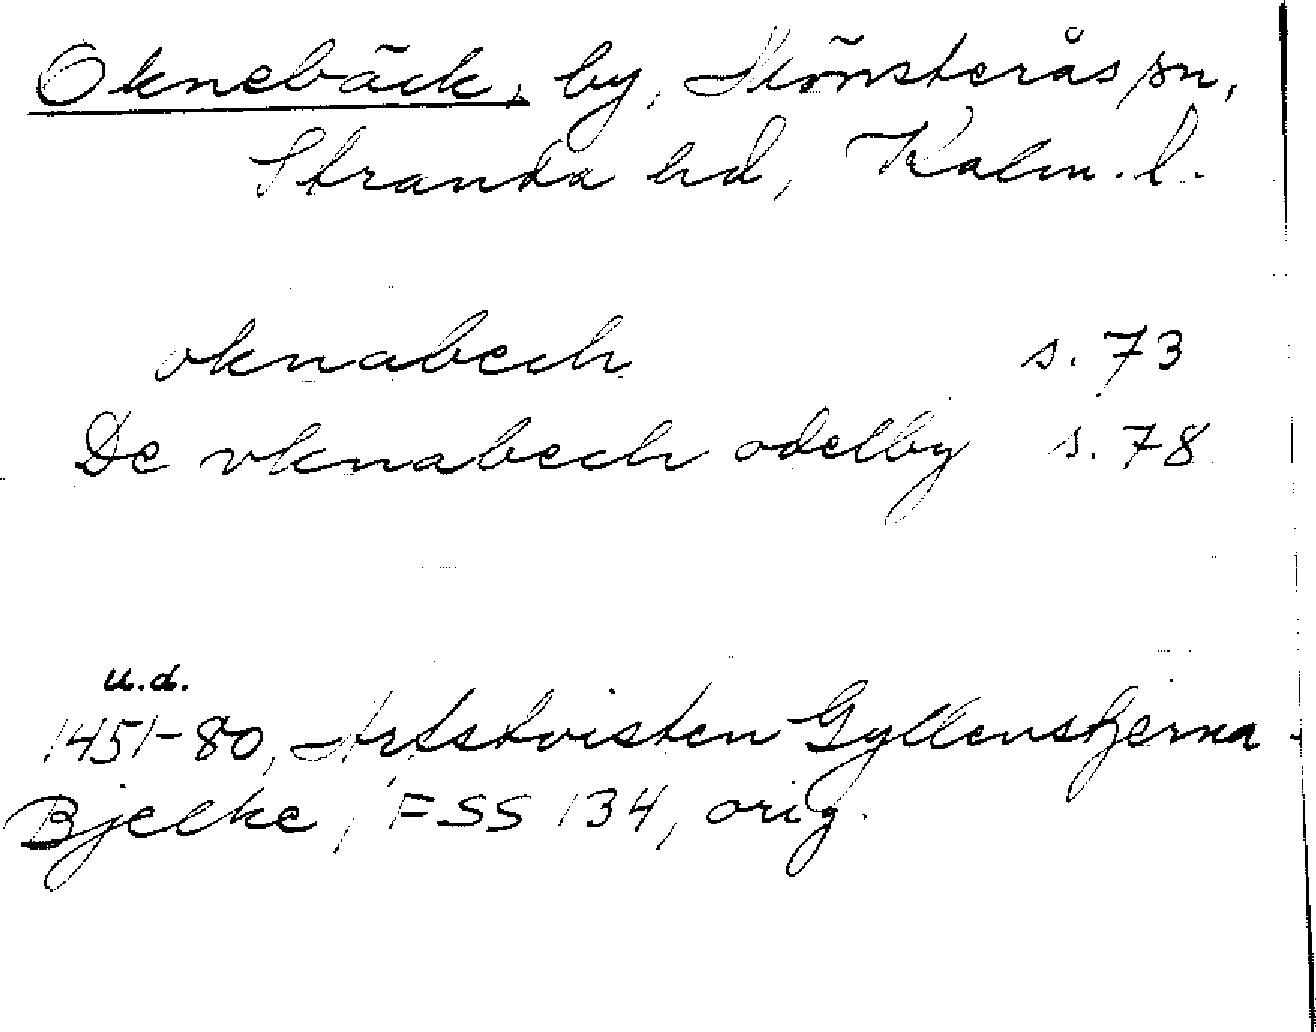 Oknebäck, by, Mönsterås sn,
Stranda hd, Kalm. l.
oknabech s. 73
De oknabech odelby s. 78
u.d.
1451-80, Arfstvisten Gyllenstjerna-
Bjelke, FSS 134, orig.